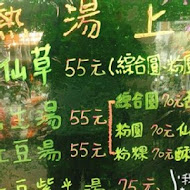 熱湯上
仙草 55元(綜合圓 粉
湯 55元 綜合圓 70元
粉圓 70元 仙
豆湯 55元 粉粿 70元 酥
紫米湯 75元